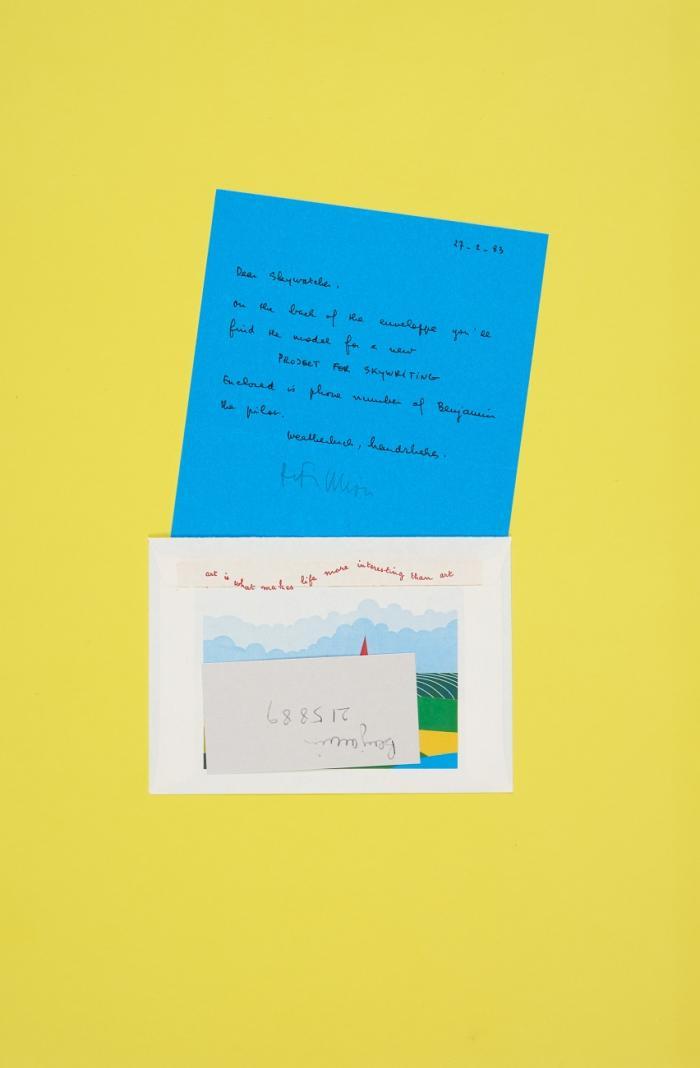 27-2-83
Dear Skywatcher,
on the back of the enveloppe you'll
find the model for a new
PROJECT FOR SKYWRITING
Enclosed is phone number of Benjamin
the pilot.
art is what makes life more interesting than art
215889
benjamin